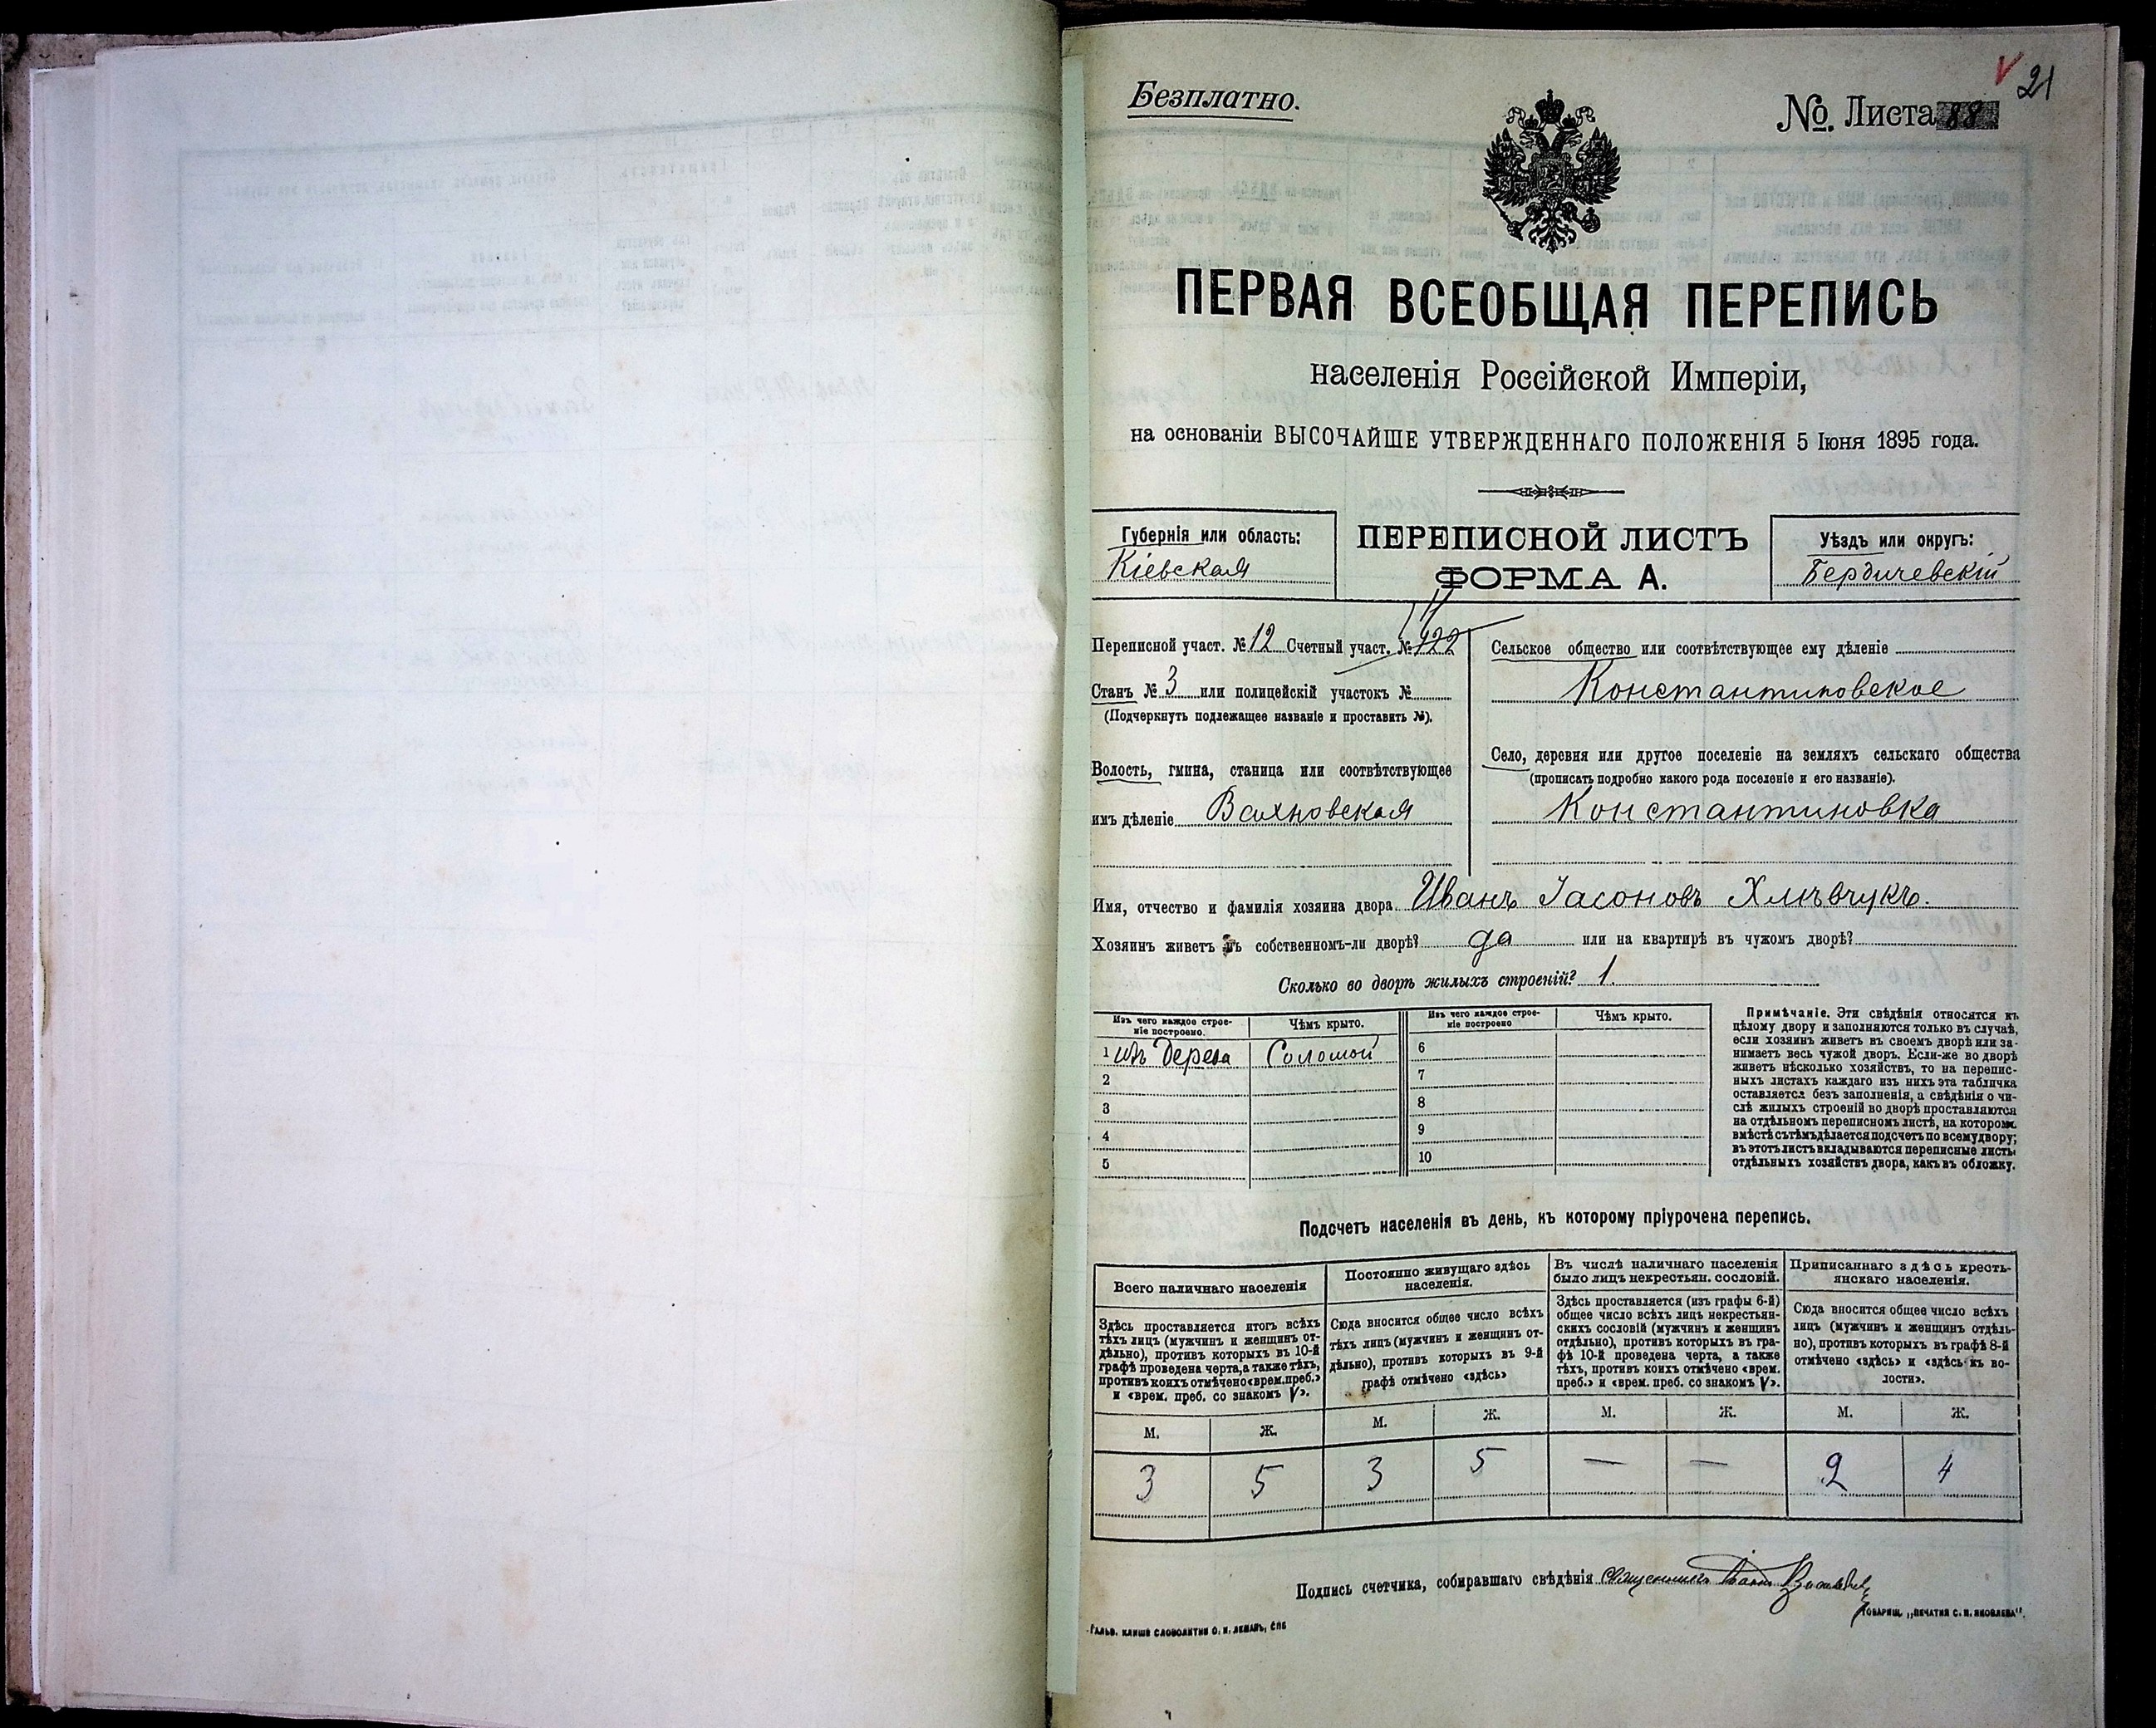 21
Безплатно.
№. Листа 88
ПЕРВАЯ ВСЕОБЩАЯ ПЕРЕПИСЬ
населенія Россійской Имперіи,
на основаніи ВЫСОЧАЙШЕ УТВЕРЖДЕННАГО ПОЛОЖЕНІЯ 5 Іюня 1895 года.
Губернія или область:
Кіевская
ПЕРЕПИСНОЙ ЛИСТЪ
ФОРМА А.
Уѣздъ или округъ:
Бердичевскій
Переписной участ. № 12 Счетный участ. № 122
11
Станъ № 3 или полицейскій участокъ №
(Подчеркнуть подлежащее названіе и проставить №).
Волость, гмина, станица или соотвѣтствующее
имъ дѣленіе Вахновская
Сельское общество или соотвѣтствующее ему дѣленіе
Константиновское
Село, деревня или другое поселеніе на земляхъ сельскаго общества
(прописать подробно какого рода поселеніе и его названіе).
Константиновка
Имя, отчество и фамилія хозяина двора. Иванъ Іасоновъ Хлѣвчукъ.
Хозяинъ живетъ въ собственномъ-ли дворѣ? да или на квартирѣ въ чужомъ дворѣ?
Сколько во дворѣ жилыхъ строеній? 1.
Изъ чего каждое строе-
ніе построено.
Чѣмъ крыто.
Изъ чего каждое строе-
ніе построено
Чѣмъ крыто.
1 изъ дерева Соломой
2
3
4
5
6
7
8
9
10
Примѣчаніе. Эти свѣдѣнія относятся къ
цѣлому двору и заполняются только въ случаѣ,
если хозяинъ живетъ въ своемъ дворѣ или за-
нимаетъ весь чужой дворъ. Если-же во дворѣ
живетъ нѣсколько хозяйствъ, то на перепис-
ныхъ листахъ каждаго изъ нихъ эта табличка
оставляется безъ заполненія, а свѣдѣнія о чи-
слѣ жилыхъ строеній во дворѣ проставляются
на отдѣльномъ переписномъ листѣ, на которомъ
вмѣстѣ съ тѣмъ дѣлается подсчетъ по всему двору;
въ этотъ листъ вкладываются переписные листы
отдѣльныхъ хозяйствъ двора, какъ въ обложку.
Подсчетъ населенія въ день, къ которому пріурочена перепись.
Всего наличнаго населенія
Здѣсь проставляется итогъ всѣхъ
тѣхъ лицъ (мужчинъ и женщинъ от-
дѣльно), противъ которыхъ въ 10-й
графѣ проведена черта, а также тѣхъ,
противъ коихъ отмѣчено «врем. преб.»
и «врем. преб. со знакомъ V».
Постоянно живущаго здѣсь
населенія.
Сюда вносится общее число всѣхъ
тѣхъ лицъ (мужчинъ и женщинъ от-
дѣльно), противъ которыхъ въ 9-й
графѣ отмѣчено «здѣсь»
Въ числѣ наличнаго населенія
было лицъ некрестьян. сословій.
Здѣсь проставляется (изъ графы 6-й)
общее число всѣхъ лицъ некрестьян-
скихъ сословій (мужчинъ и женщинъ
отдѣльно), противъ которыхъ въ гра-
фѣ 10-й проведена черта, а также
тѣхъ, противъ коихъ отмѣчено «врем.
преб.» и «врем. преб. со знакомъ V».
Приписаннаго здѣсь кресть-
янскаго населенія.
Сюда вносится общее число всѣхъ
лицъ (мужчинъ и женщинъ отдѣль-
но), противъ которыхъ въ графѣ 8-й
отмѣчено «здѣсь» и «здѣсь къ во-
лости».
М. Ж. М. Ж. М. Ж. М. Ж.
3 5 3 5 — — 2 4
Подпись счетчика, собиравшаго свѣдѣнія Священникъ
Гальв. клише словолитни О. И. Леманъ, СПБ
Товарищ. „Печатня С. П. Яковлева".